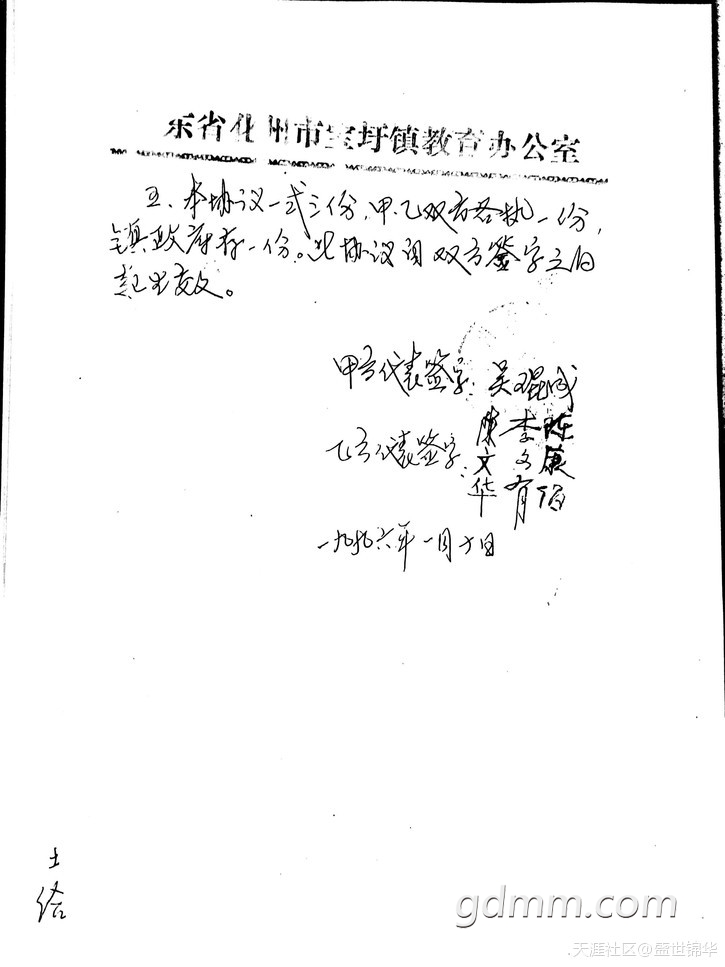 东省化州市宝圩镇教育办公室
五、本协议一式三份,甲、乙双方各执一份,
镇政府存一份。此协议自双方签字之日
起生效。
甲方代表签字:吴琨成
乙方代表签字:
陈文华
李文有
陈
一九九六年一月十日
土
gdmm.com
天涯社区@盛世锦华